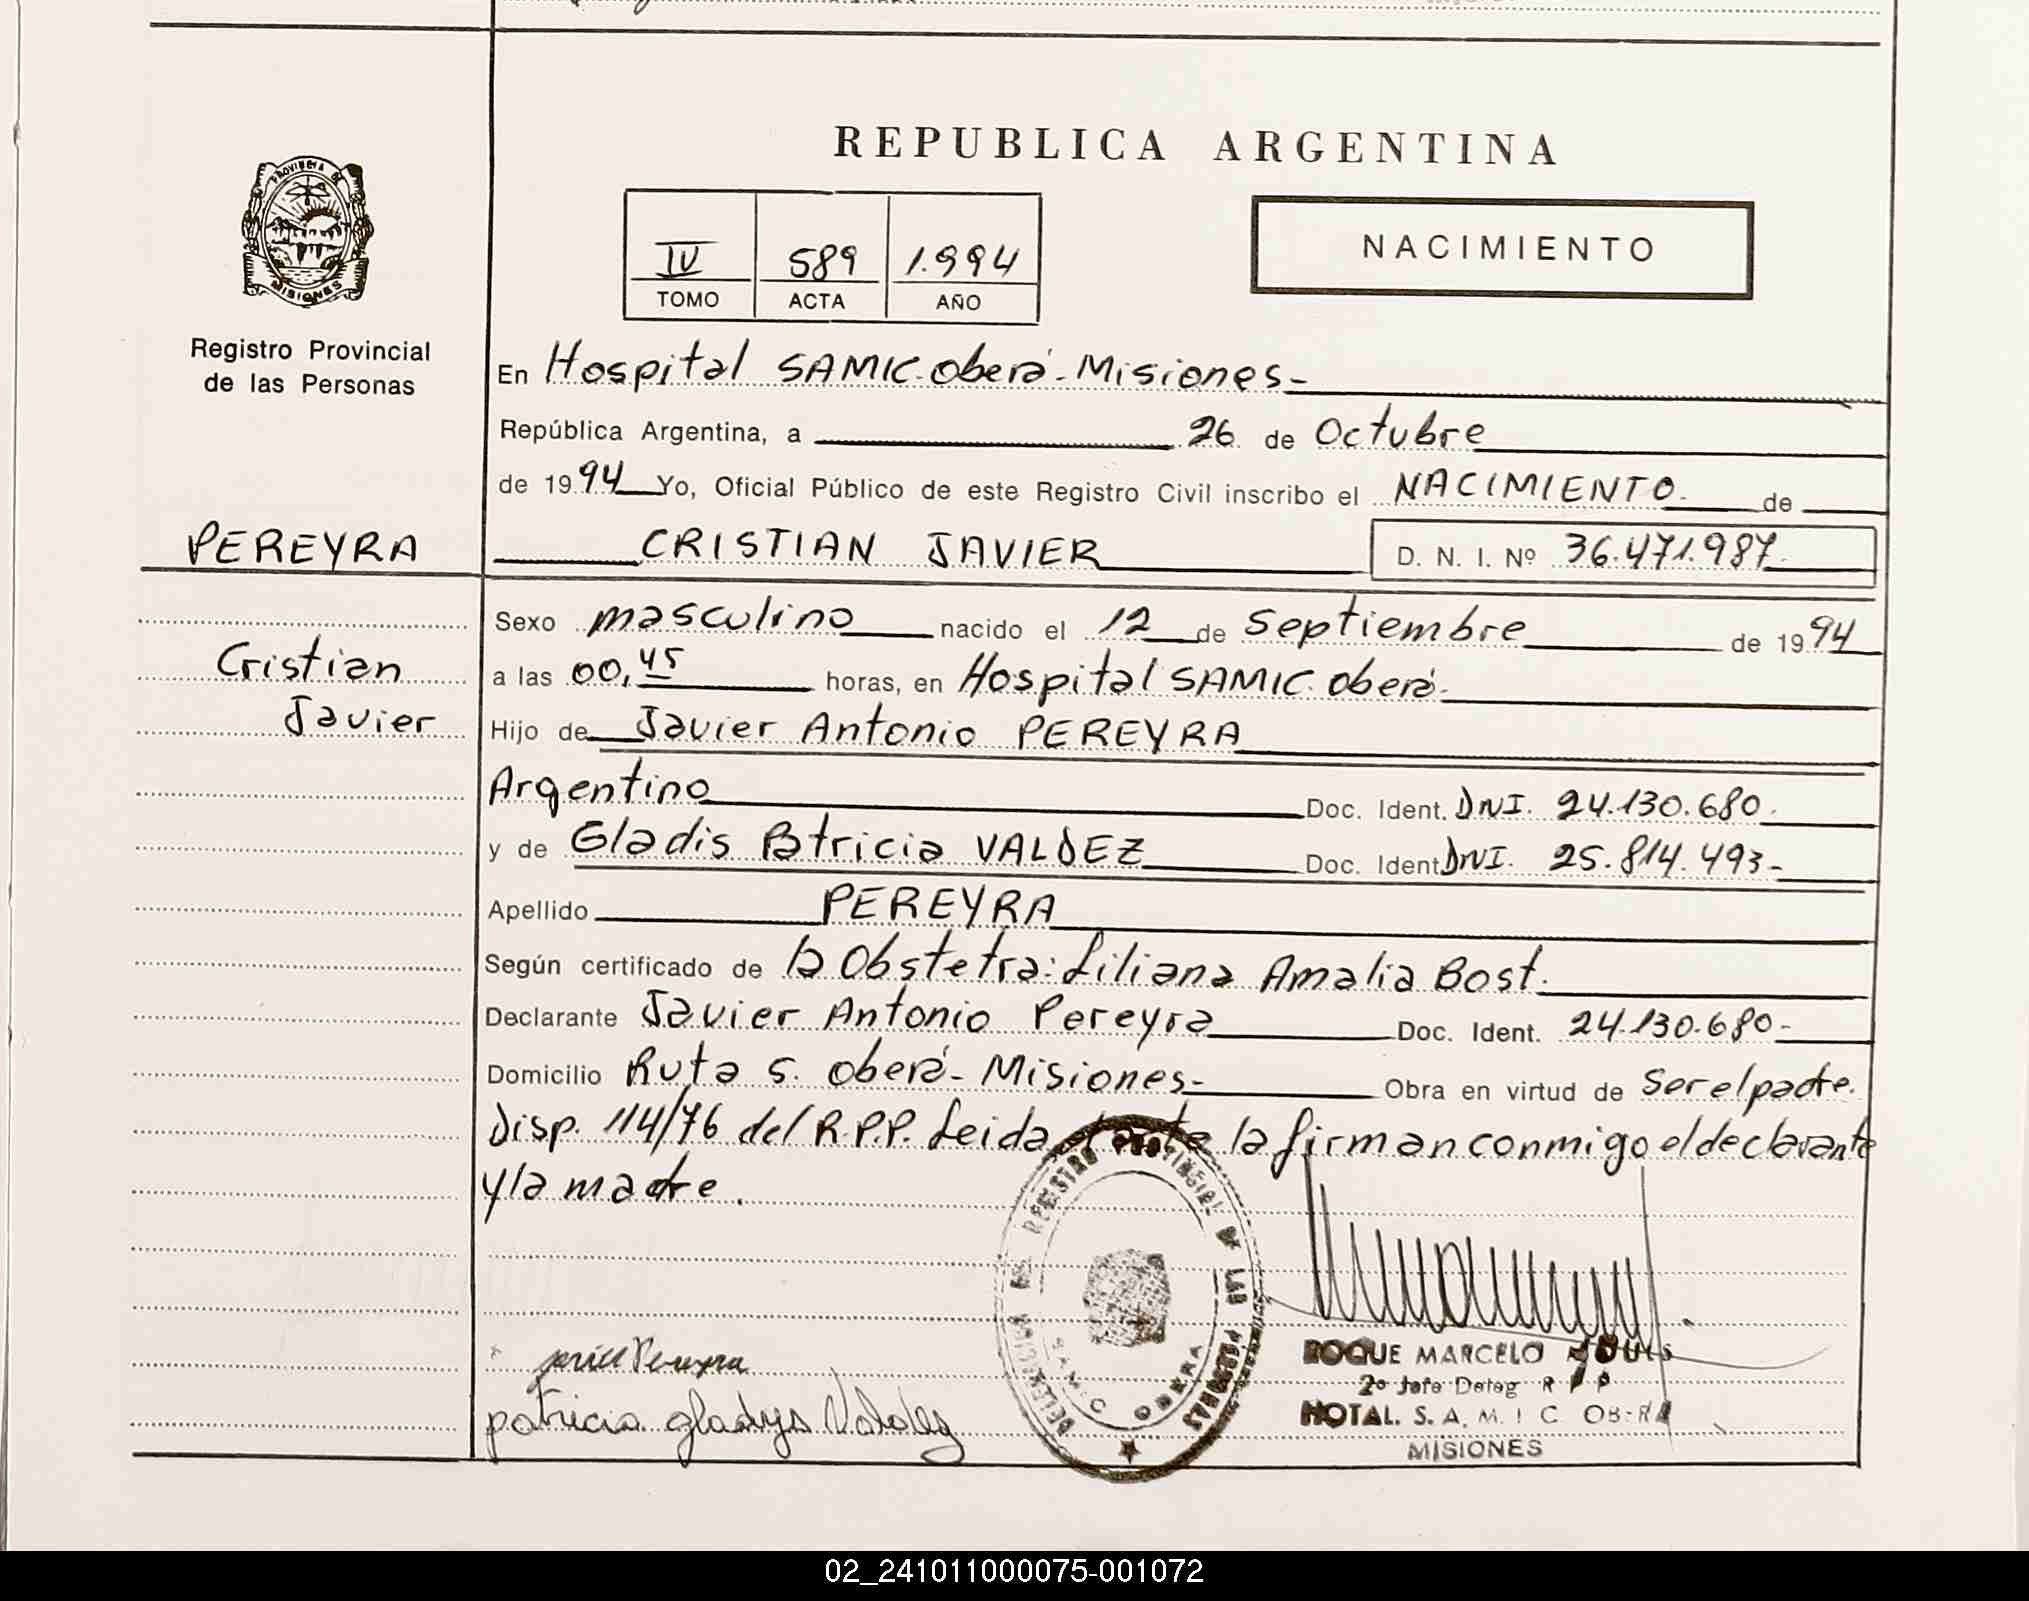 REPUBLICA ARGENTINA
PROVINCIA DE
MISIONES
IV 589 1.994
TOMO ACTA AÑO
NACIMIENTO
Registro Provincial
de las Personas
En Hospital SAMIC. Oberá - Misiones -
República Argentina, a 26 de Octubre
de 1994 Yo, Oficial Público de este Registro Civil inscribo el NACIMIENTO. de
PEREYRA CRISTIAN JAVIER D. N. I. Nº 36.471.987
Sexo masculino nacido el 12 de Septiembre de 1994
Cristian
a las 00,45 horas, en Hospital SAMIC. Oberá -
Javier
Hijo de Javier Antonio PEREYRA
Argentino Doc. Ident. DNI. 24.130.680.
y de Gladis Patricia VALDEZ Doc. Ident. DNI. 25.814.493 -
Apellido PEREYRA
Según certificado de la Obstetra: Liliana Amalia Bost.
Declarante Javier Antonio Pereyra Doc. Ident. 24.130.680 -
Domicilio Ruta 5. Oberá - Misiones - Obra en virtud de Ser el padre.
Disp. 114/76 del R.P.P. Leida el acta la firman conmigo el declarante
y la madre.
DELEGACION DEL REGISTRO PROVINCIAL DE LAS PERSONAS
SAMIC OBERA
Pereyra
patricia gladys Valdez
ROQUE MARCELO
2º Jefe Deleg R P P
HOTAL. S. A. M. I C OBERA
MISIONES
02_241011000075-001072